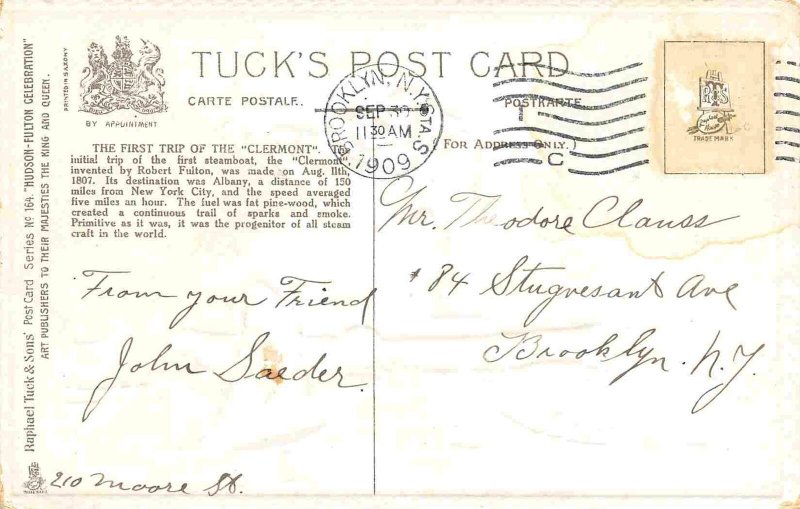 TUCK'S POST CARD
CARTE POSTALE.
POSTKARTE
BY APPOINTMENT
PRINTED IN SAXONY
(FOR ADDRESS ONLY.)
BROOKLYN, N.Y. STA. S
SEP 30
11 30 AM
1909
C
RTS
TRADE MARK
THE FIRST TRIP OF THE "CLERMONT".
initial trip of the first steamboat, the "Clermont"
invented by Robert Fulton, was made on Aug. 11th,
1807. Its destination was Albany, a distance of 150
miles from New York City, and the speed averaged
five miles an hour. The fuel was fat pine-wood, which
created a continuous trail of sparks and smoke.
Primitive as it was, it was the progenitor of all steam
craft in the world.
Mr. Theodore Clauss
#84 Stugvesant Ave
Brooklyn. N.Y.
From your Friend
John Saeder.
210 Moore St.
Raphael Tuck & Sons' Post Card Series No 164. "HUDSON-FULTON CELEBRATION"
ART PUBLISHERS TO THEIR MAJESTIES THE KING AND QUEEN.